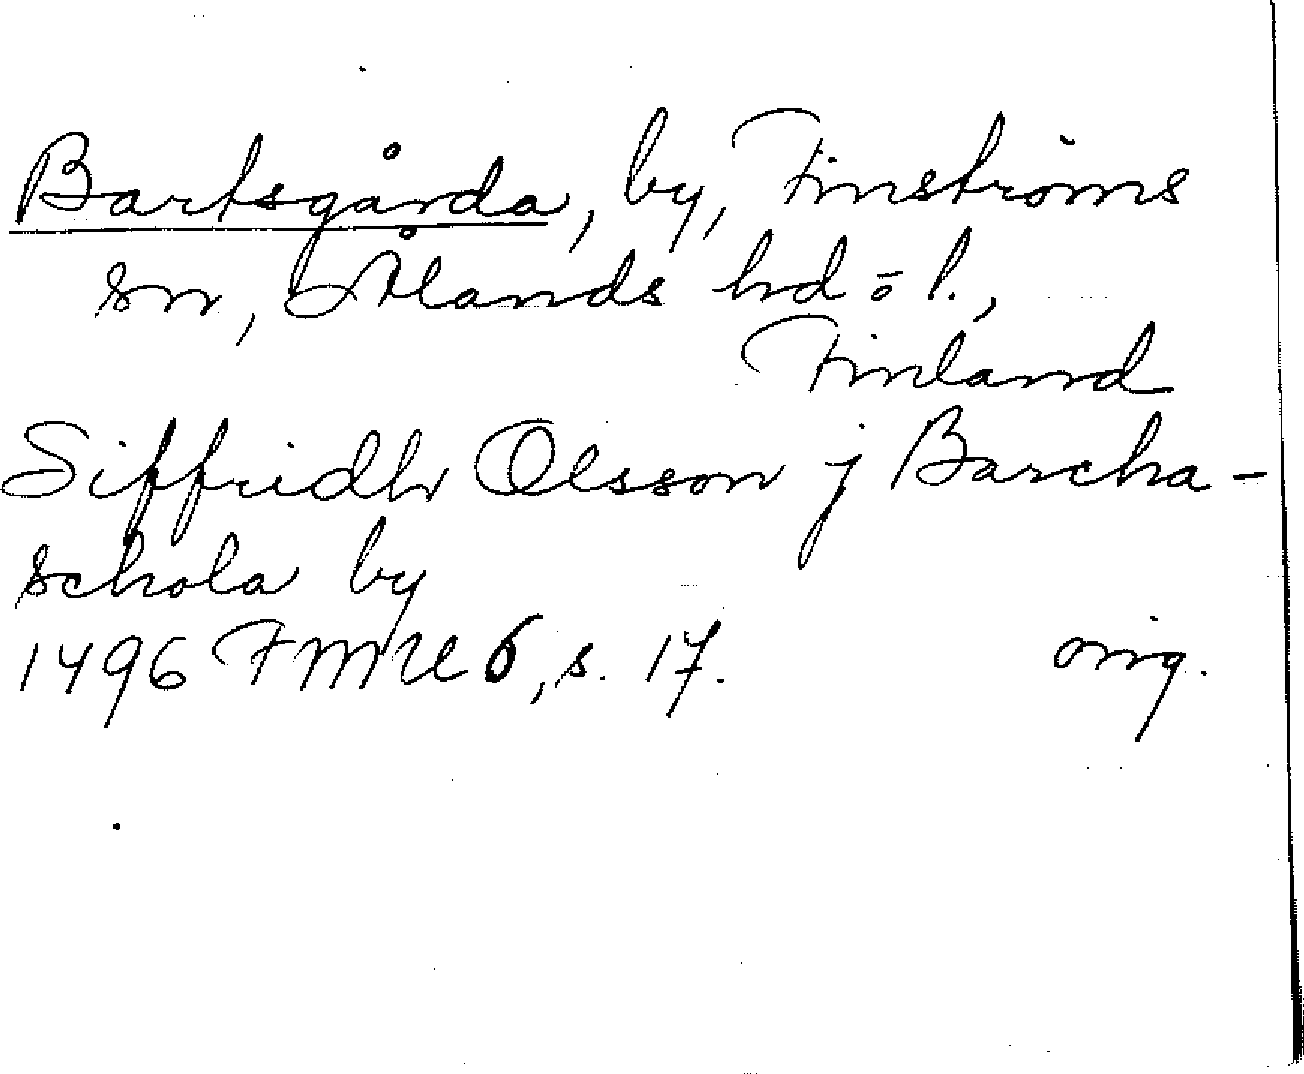 Bartsgårda, by, Finströms
sn, Ålands hd o l.,
Finland
Siffridh Olsson j Barcha-
schola by
1496 FMU 6, s. 17. orig.